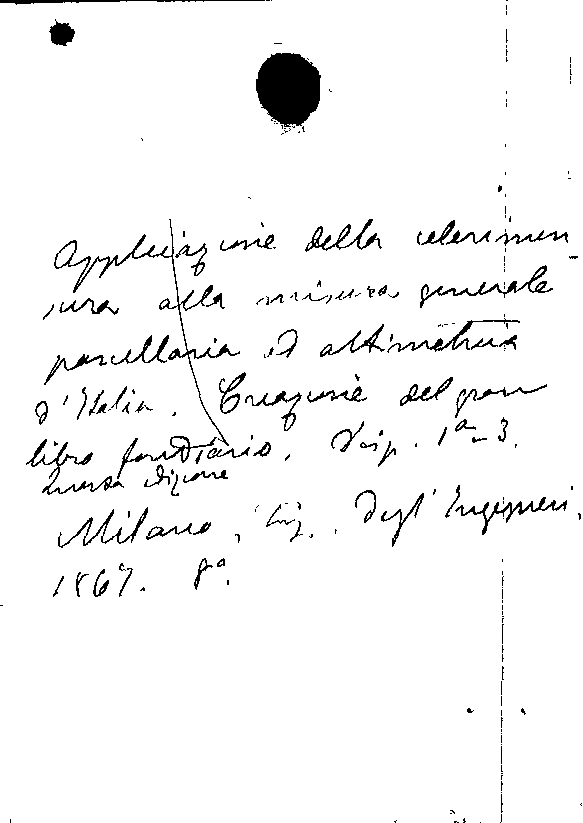 Applicazione della celerimen
sura alla misura generale
parcellaria ed altimetria
d'Italia. Creazione del gran
libro fondiario. Disp. 1a-3.
edizione
Milano, Tip. degl'Ingegneri,
1867. 8°.